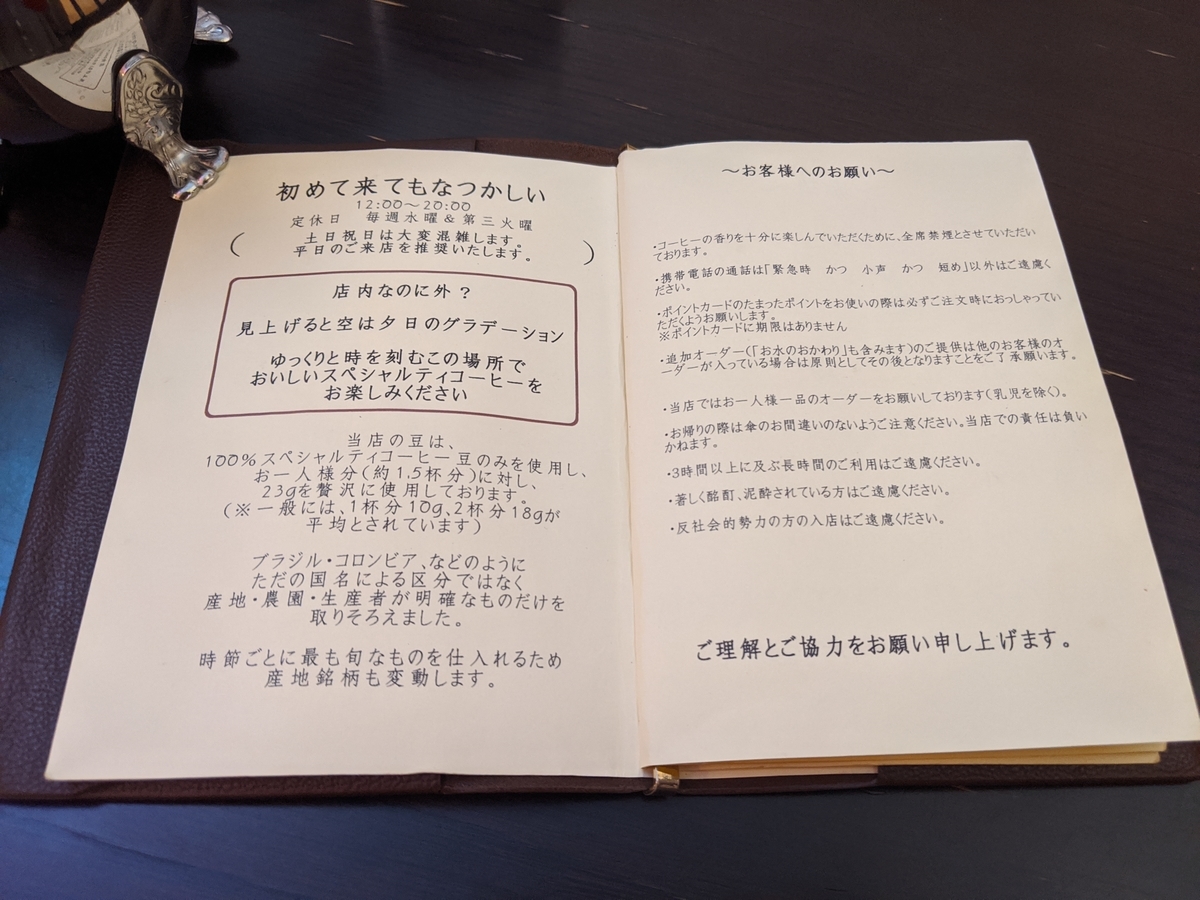 初めて来てもなつかしい
12:00～20:00
定休日　毎週水曜＆第三火曜
（土日祝日は大変混雑します。
平日のご来店を推奨いたします。）
店内なのに外？
見上げると空は夕日のグラデーション
ゆっくりと時を刻むこの場所で
おいしいスペシャルティコーヒーを
お楽しみください
当店の豆は、
100％スペシャルティコーヒー豆のみを使用し、
お一人様分（約1.5杯分）に対し、
23gを贅沢に使用しております。
（※一般には、1杯分10g、2杯分18gが
平均とされています）
ブラジル・コロンビア、などのように
ただの国名による区分ではなく
産地・農園・生産者が明確なものだけを
取りそろえました。
時節ごとに最も旬なものを仕入れるため
産地銘柄も変動します。
～お客様へのお願い～
・コーヒーの香りを十分に楽しんでいただくために、全席禁煙とさせていただい
ております。
・携帯電話の通話は「緊急時　かつ　小声　かつ　短め」以外はご遠慮く
ださい。
・ポイントカードのたまったポイントをお使いの際は必ずご注文時におっしゃってい
ただくようお願いします。
※ポイントカードに期限はありません
・追加オーダー（「お水のおかわり」も含みます）のご提供は他のお客様のオ
ーダーが入っている場合は原則としてその後となりますことをご了承願います。
・当店ではお一人様一品のオーダーをお願いしております（乳児を除く）。
・お帰りの際は傘のお間違いのないようご注意ください。当店での責任は負い
かねます。
・3時間以上に及ぶ長時間のご利用はご遠慮ください。
・著しく酩酊、泥酔されている方はご遠慮ください。
・反社会的勢力の方の入店はご遠慮ください。
ご理解とご協力をお願い申し上げます。